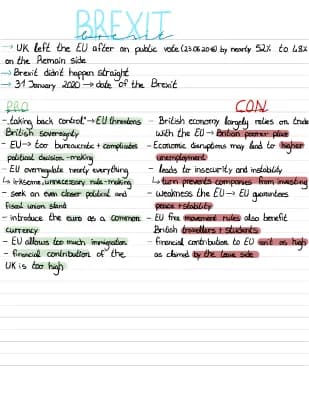 BREXIT
brexit
→ UK left the EU after an public vote (23.06.2016) by nearly 52% to 48%
on the Remain side
→ Brexit didn't happen straight
→ 31 January 2020 → date of the Brexit
PRO
- „taking back control" → EU threatens
British sovereignty
- EU → too bureaucratic + complicates
political decision-making
- EU overregulate nearly everything
↳ irksome, unnecessary rule-making
- seek an even closer political and
fiscal union stand
- introduce the euro as a common
currency
- EU allows too much immigration
- financial contribution of the
UK is too high
CON
- British economy largely relies on trade
with the EU → Britain poorer place
- Economic disruptions may lead to higher
unemployment
- leads to insecurity and instability
↳ turn prevents companies from investing
- weakness the EU → EU guarantees
peace + stability
- EU free movement rules also benefit
British travellers + students
- financial contribution to EU isn't as high
as claimed by the leave side